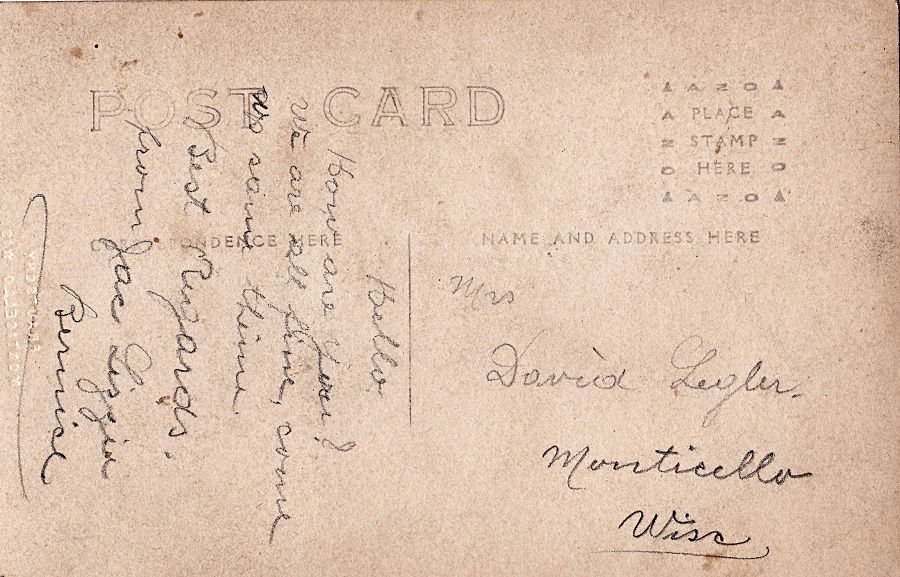 POST CARD
AZO
PLACE
STAMP
HERE
AZO
PONDENCE HERE
NAME AND ADDRESS HERE
Hello.
How are you?
We are all fine, come
some thime.
Best Regards.
from Jac Lizzie
Bernice
Mrs
David Legler.
Monticello
Wisc